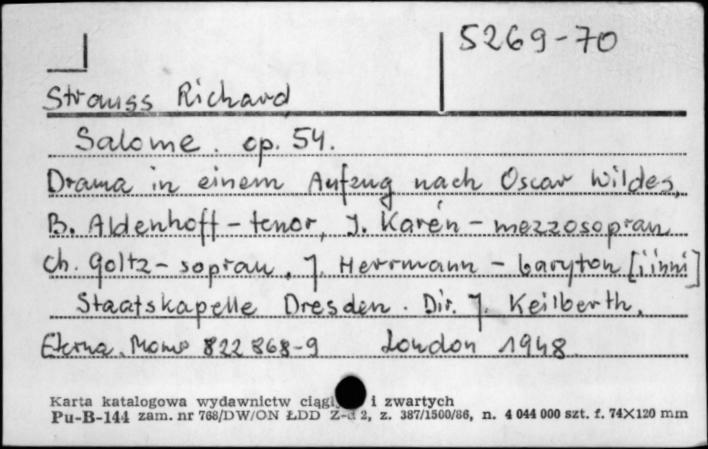 5269-70
Strauss Richard
Salome. op. 54.
Drama in einem Aufzug nach Oscar Wildes.
B. Aldenhoff - tenor, I. Karén - mezzosopran
Ch. Goltz - sopran, J. Herrmann - baryton [i inni]
Staatskapelle Dresden. Dir. J. Keilberth.
Eterna. Mono 822 868-9 London 1948
Karta katalogowa wydawnictw i zwartych
Pu-B-144 zam. nr 768/DW/ON ŁDD 2, z. 387/1500/86, n. 4 044 000 szt. f. 74×120 mm